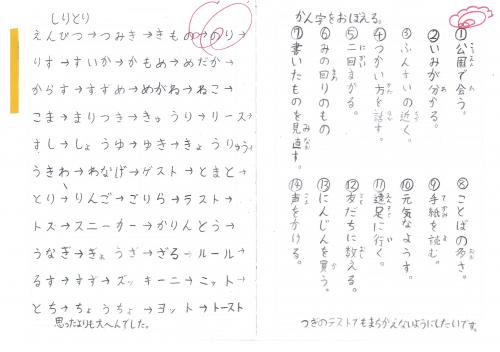 しりとり
えんぴつ→つみき→きもの→のり→
りす→すいか→かもめ→めだか→
からす→すずめ→めがね→ねこ→
こま→まりつき→きゅうり→リース→
すし→しょうゆ→ゆき→きょうりゅう→
うきわ→わなげ→ゲスト→とまと→
とり→りんご→ごりら→ラスト→
トス→スニーカー→かりんとう→
うなぎ→ぎょうざ→ざる→ルール→
るす→すず→ズッキーニ→ニット→
とち→ちょうちょ→ヨット→トースト
思ったよりも大へんでした。
かん字をおぼえる。
①公園で会う。
②いみが分かる。
③ふんすいの近く。
④つかい方を話す。
⑤二回まがる。
⑥みの回りのもの
⑦書いたものを見直す。
⑧ことばの多さ。
⑨手紙を読む。
⑩元気なようす。
⑪遠足に行く。
⑫友だちに教える。
⑬にんじんを買う。
⑭声をかける。
つぎのテストでもまちがえないようにしたいです。